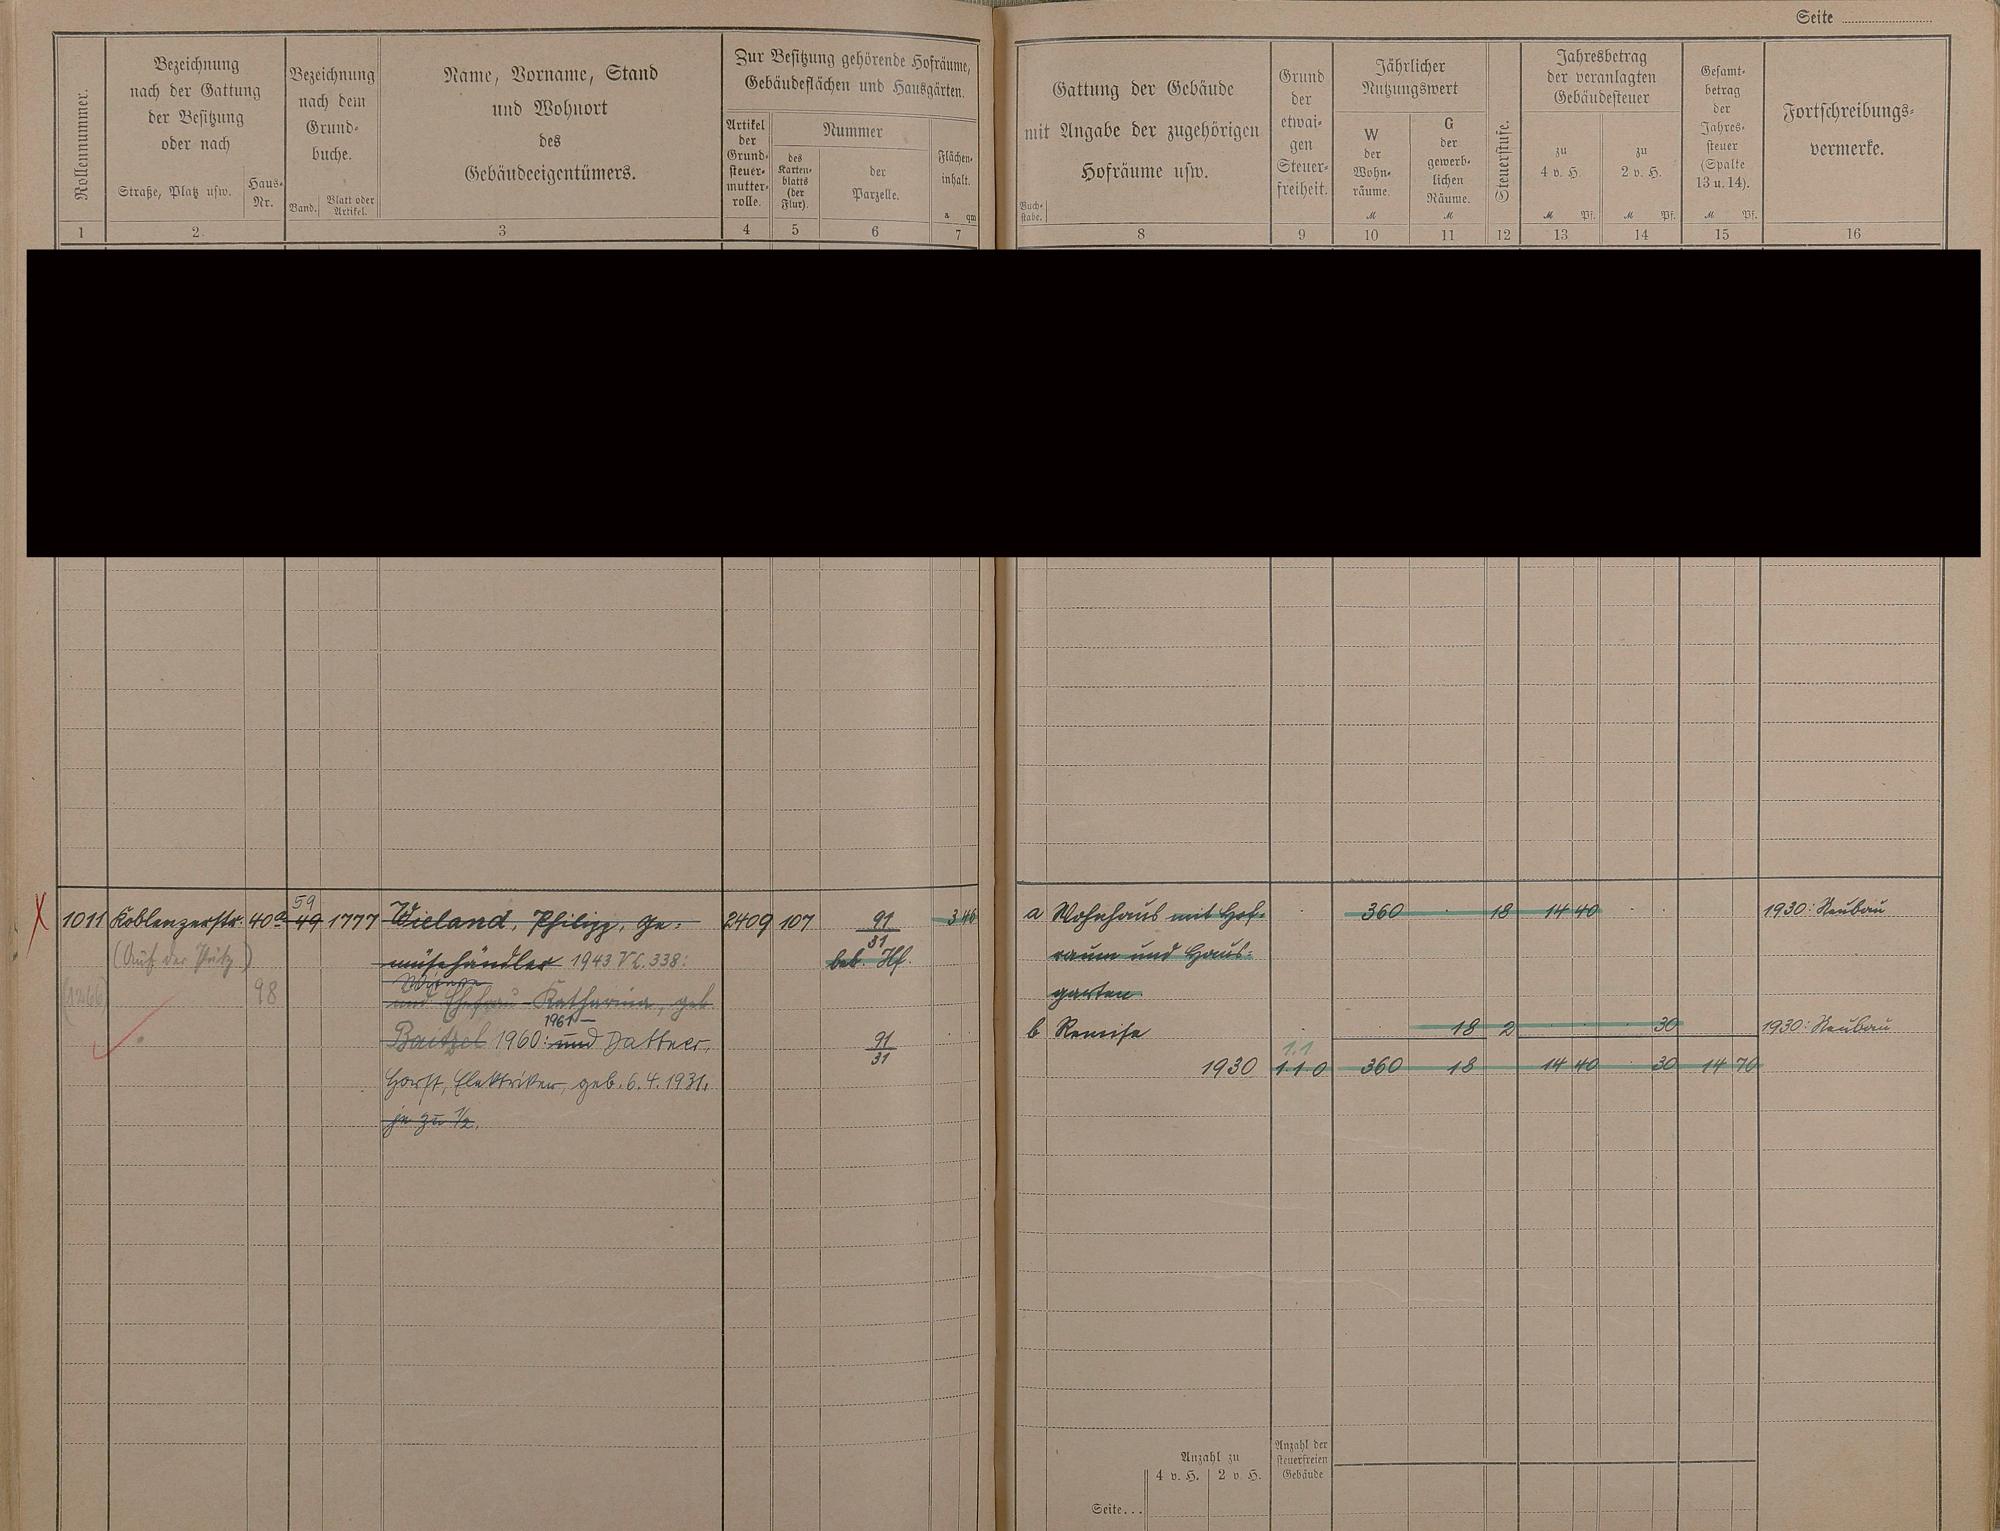 Seite
Rollennummer.
Bezeichnung
nach der Gattung
der Besitzung
oder nach
Straße, Platz usw.
Haus-
Nr.
Bezeichnung
nach dem
Grund-
buche.
Band.
Blatt oder
Artikel.
Name, Vorname, Stand
und Wohnort
des
Gebäudeeigentümers.
Zur Besitzung gehörende Hofräume,
Gebäudeflächen und Hausgärten.
Artikel
der
Grund-
steuer-
mutter-
rolle.
Nummer
des
Karten-
blatts
(der
Flur).
der
Parzelle.
Flächen-
inhalt.
a qm
Gattung der Gebäude
mit Angabe der zugehörigen
Hofräume usw.
Buch-
stabe.
Grund
der
etwai-
gen
Steuer-
freiheit.
Jährlicher
Nutzungswert
W
der
Wohn-
räume.
M
G
der
gewerb-
lichen
Räume.
M
Steuerstufe.
Jahresbetrag
der veranlagten
Gebäudesteuer
zu
4 v. H.
M Pf.
zu
2 v. H.
M Pf.
Gesamt-
betrag
der
Jahres-
steuer
(Spalte
13 u. 14).
M Pf.
Fortschreibungs-
vermerke.
1 2. 3 4 5 6 7 8 9 10 11 12 13 14 15 16
59
1011 Koblenzerstr. 40a 49 1777 Wieland, Philipp, Ge- 2409 107 91/31 3 46
(Auf der Pütz)
müsehändler 1943 VL. 338:
beb. Hf.
98
Witwe
und Ehefrau Katharina, geb.
1961
Baitzel 1960: und Dattner,
91/31
Horst, Elektriker, geb. 6.4.1931.
je zu 1/2.
a Wohnhaus mit Hof- 360 18 14 40 1930: Neubau
raum und Haus-
garten
b Remise 18 2 30 1930: Neubau
1.1
1930 1 1 0 360 18 14 40 30 14 70
Anzahl zu
4 v. H. 2 v. H.
Anzahl der
steuerfreien
Gebäude
Seite...